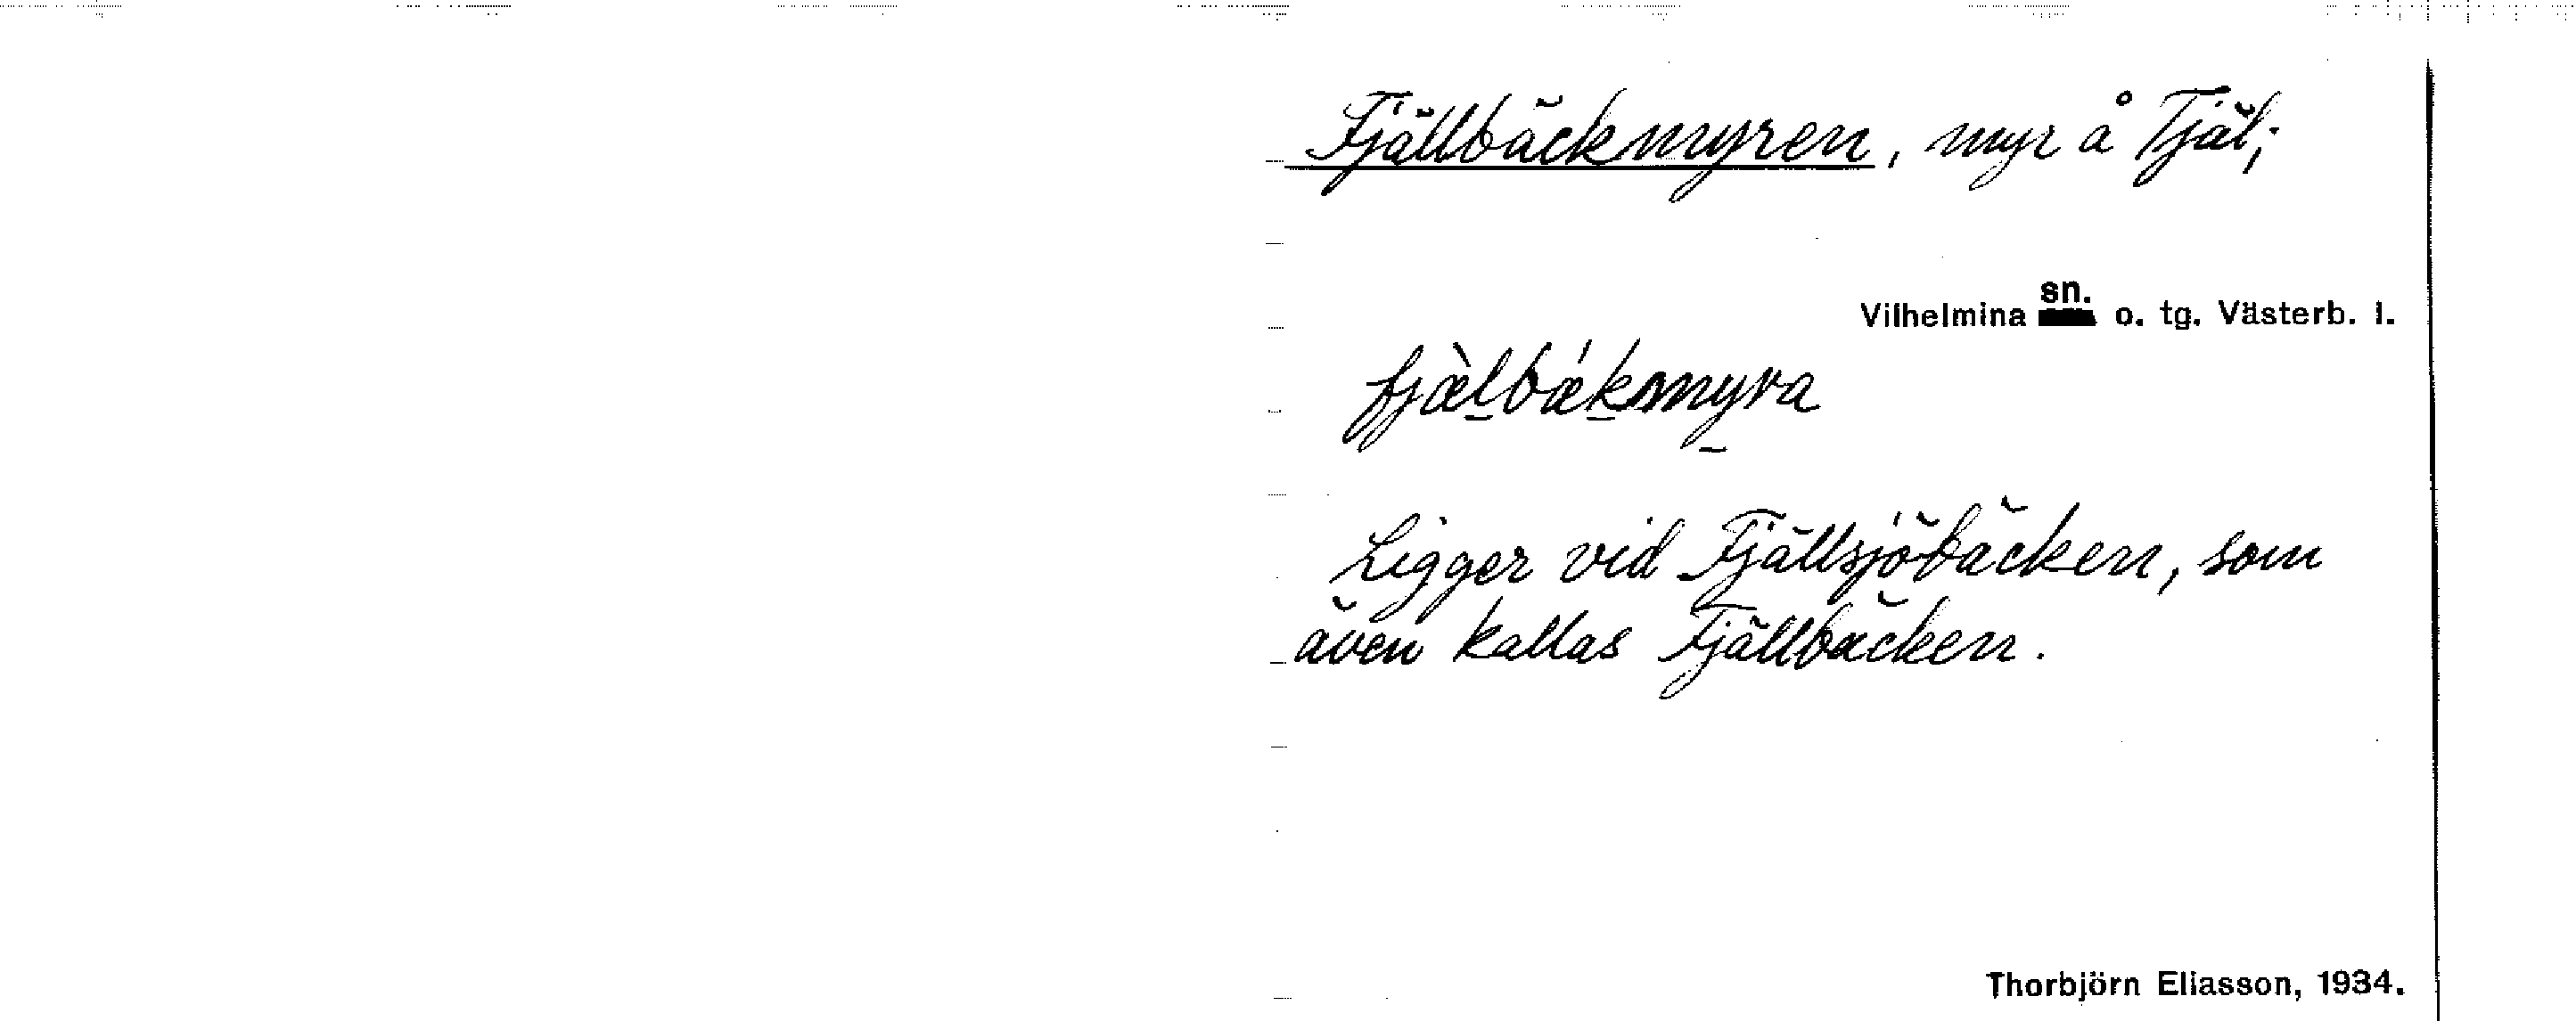 Fjällbäckmyren, myr å Tjäl;
Vilhelmina sn. o. tg. Västerb. l.
fjæ̀lbǽkmyra
Ligger vid Fjällsjöbäcken, som
även kallas Fjällbäcken.
Thorbjörn Eliasson, 1934.